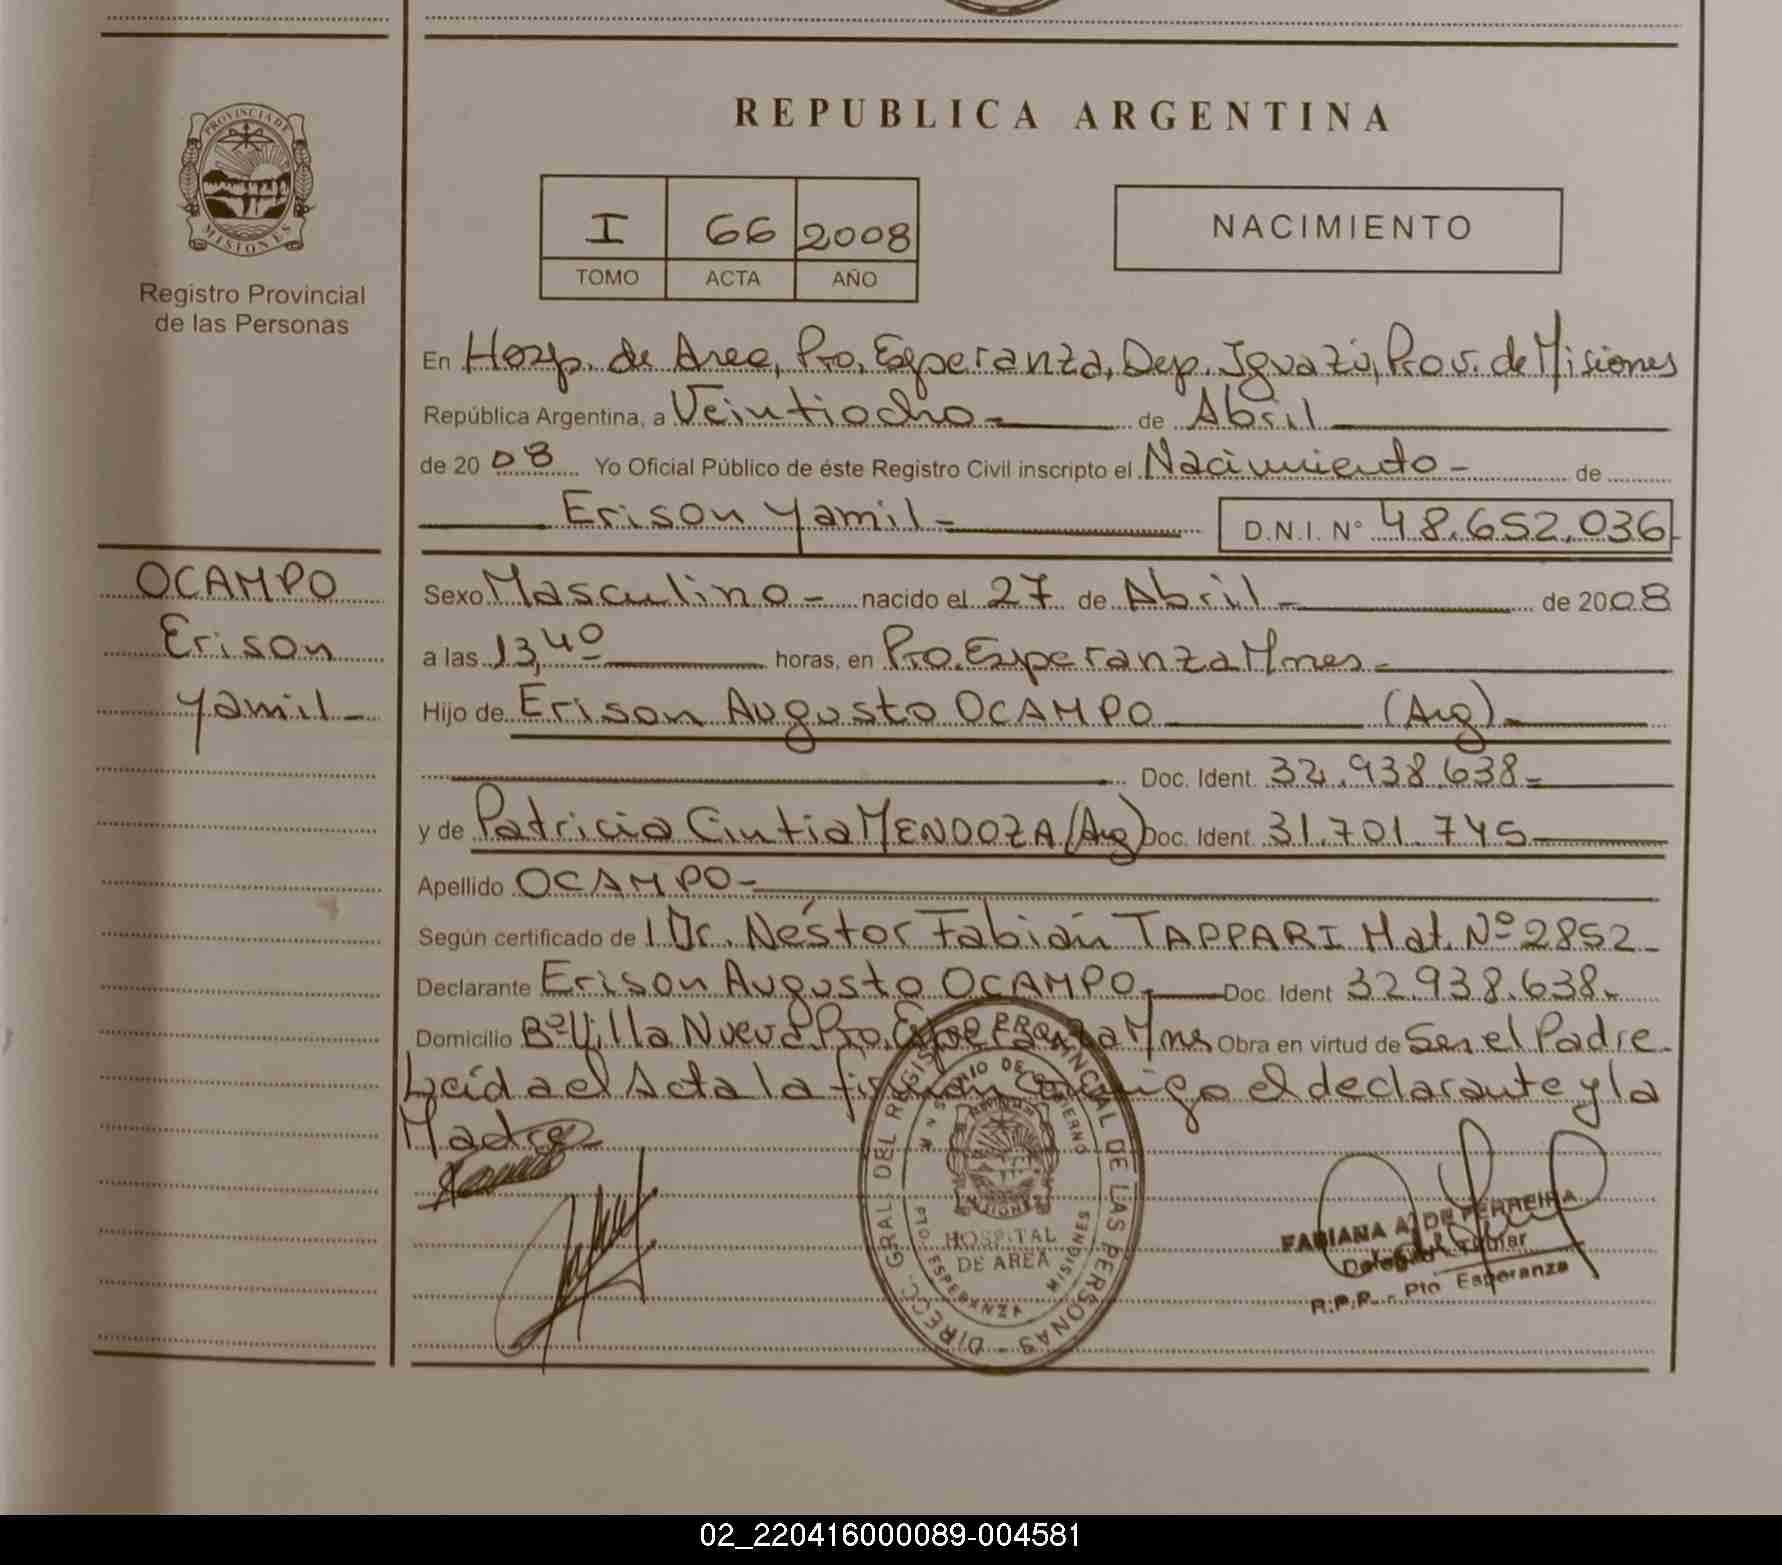 PROVINCIA DE
MISIONES
Registro Provincial
de las Personas
OCAMPO
Erison
Yamil -
REPUBLICA ARGENTINA
I 66 2008
TOMO ACTA AÑO
NACIMIENTO
En Hosp. de Area, Pto. Esperanza, Dep. Iguazú, Prov. de Misiones
República Argentina, a Veintiocho - de Abril
de 20 08 Yo Oficial Público de éste Registro Civil inscripto el Nacimiento - de
Erison Yamil - D.N.I. N° 48.652.036
Sexo Masculino - nacido el 27 de Abril - de 2008
a las 13,40 horas, en Pto. Esperanza Mnes -
Hijo de Erison Augusto OCAMPO (Arg)
Doc. Ident. 32.938.638 -
y de Patricia Cintia MENDOZA (Arg) Doc. Ident. 31.701.745
Apellido OCAMPO -
Según certificado de l Dr. Néstor Fabián TAPPARI Mat. Nº 2852 -
Declarante Erison Augusto OCAMPO. Doc. Ident 32.938.638 -
Domicilio Bº Villa Nueva Pto. Esperanza Mnes Obra en virtud de Ser el Padre.
Leída el Acta la firman conmigo el declarante y la
Madre
DIRECC. GRAL. DEL REGISTRO PROVINCIAL DE LAS PERSONAS
MINISTERIO DE GOBIERNO
MISIONES
HOSPITAL
DE AREA
PTO. ESPERANZA - MISIONES
FABIANA A. DE FERREIRA
Delegada Titular
R.P.P. - Pto Esperanza
02_220416000089-004581